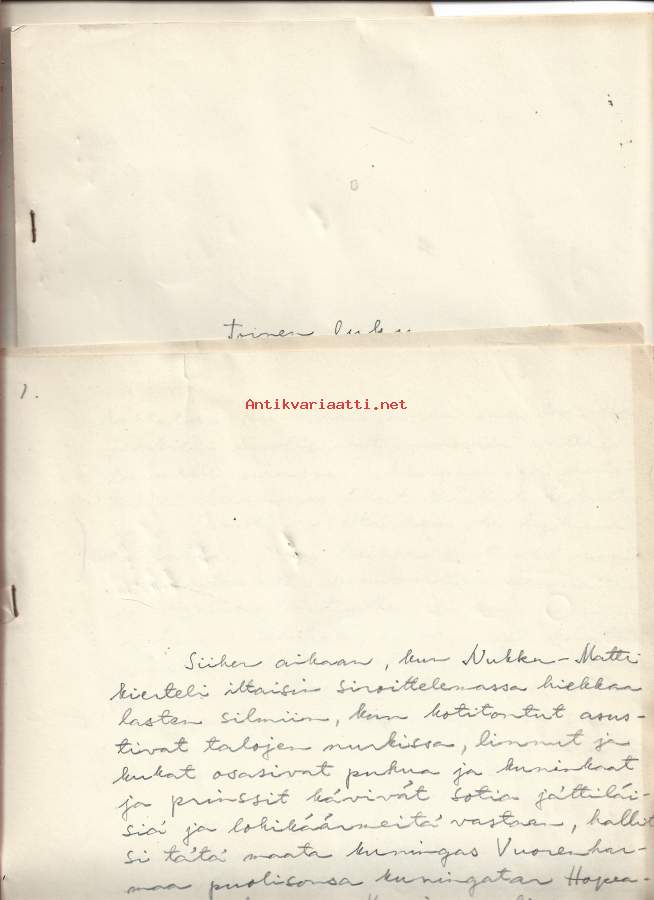 Toinen luku
1.
Antikvariaatti.net
Siihen aikaan, kun Nukku-Matti
kierteli iltaisin siroittelemassa hiekkaa
lasten silmiin, kun kotitontut asus-
tivat talojen nurkissa, linnut ja
kukat osasivat puhua ja kuninkaat
ja prinssit kävivät sotia jättiläi-
siä ja lohikäärmeitä vastaan, hallit-
si tätä maata kuningas Vuorenhar-
maa puolisonsa kuningatar Hopea-